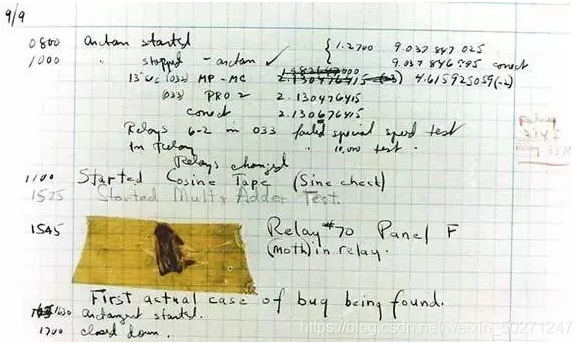 9/9
0800 antan started { 1.2700 9.037 847 025
1000 " stopped - antan ✓ 9.037 846 995 conect
13" uc (032) MP - MC 2.130476415 4.615925059(-2)
(033) PRO 2 2.130476415
conect 2.130676415
Relays 6-2 in 033 failed special speed test
In Relay " 10,000 test .
Relay
2145
Relay 3370
Relays changed
1100 Started Cosine Tape (Sine check)
1525 Started Mult + Adder Test.
1545 Relay #70 Panel F
(moth) in relay.
First actual case of bug being found.
1630 antangent started.
1700 closed down.
https://blog.csdn.net/weixin_50271247